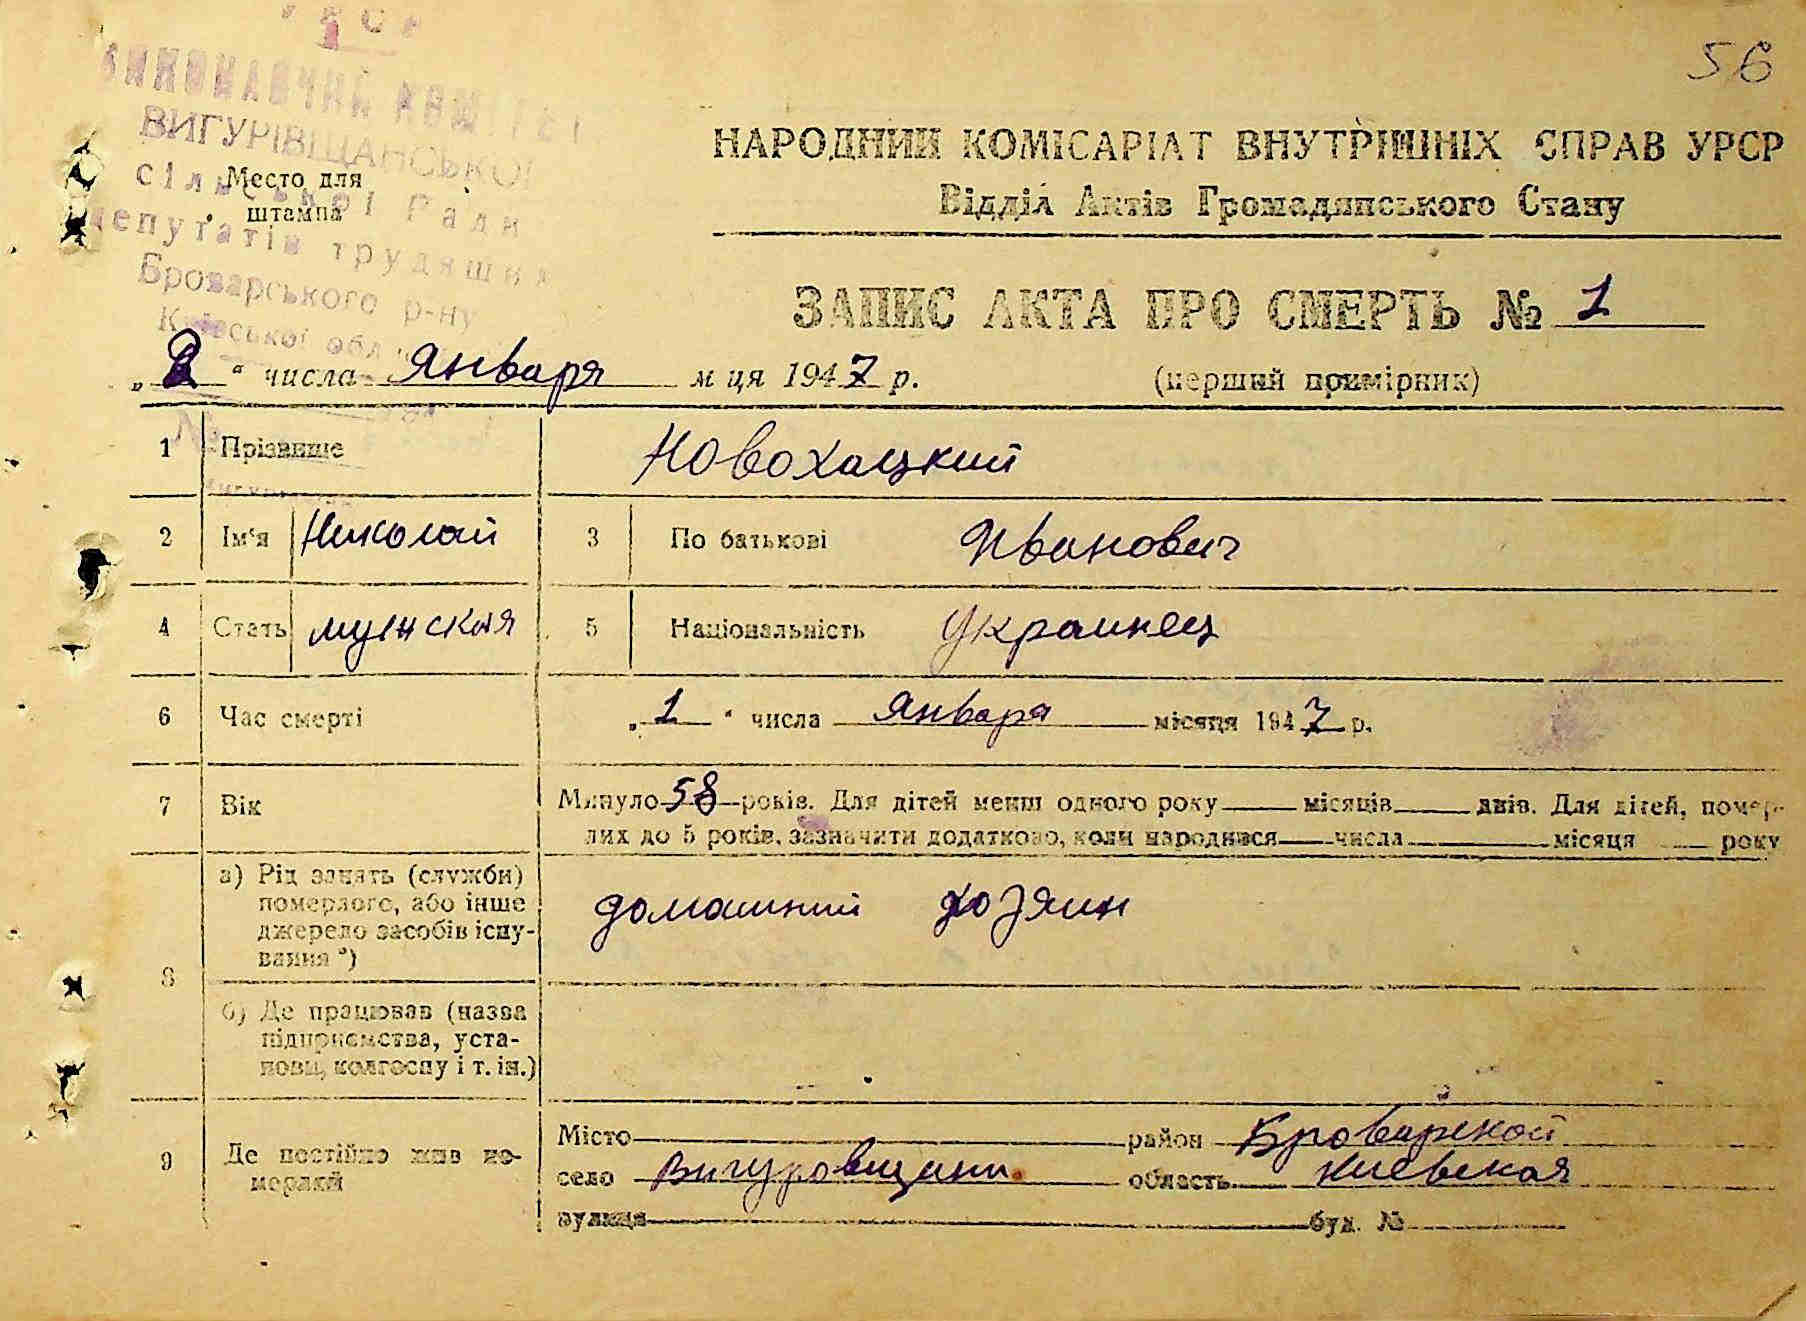 56
УРСР
ВИКОНАВЧИЙ КОМІТЕТ
ВИГУРІВЩАНСЬКОЇ
сільської Ради
депутатів трудящих
Броварського р-ну
Київської обл.
№
Место для
штампа
НАРОДНИЙ КОМІСАРІАТ ВНУТРІШНІХ СПРАВ УРСР
Відділ Актів Громадянського Стану
ЗАПИС АКТА ПРО СМЕРТЬ № 1
„2“ числа Января м ця 1947 р. (перший примірник)
1 Прізвище Новохацкий
2 Ім'я Николай 3 По батькові Иванович
4 Стать мужская 5 Національність Украинец
6 Час смерті „1“ числа Января місяця 1947 р.
7 Вік Минуло 58 років. Для дітей менш одного року місяців днів. Для дітей, помер-
лих до 5 років, зазначити додатково, коли народився числа місяця року
8 а) Рід занять (служби)
померлого, або інше
джерело засобів існу-
вання *)
домашний хозяин
б) Де працював (назва
підприємства, уста-
нови, колгоспу і т. ін.)
9 Де постійно жив по-
мерлий
Місто район Броварской
село Вигуровщина область Киевская
вулиця буд. №